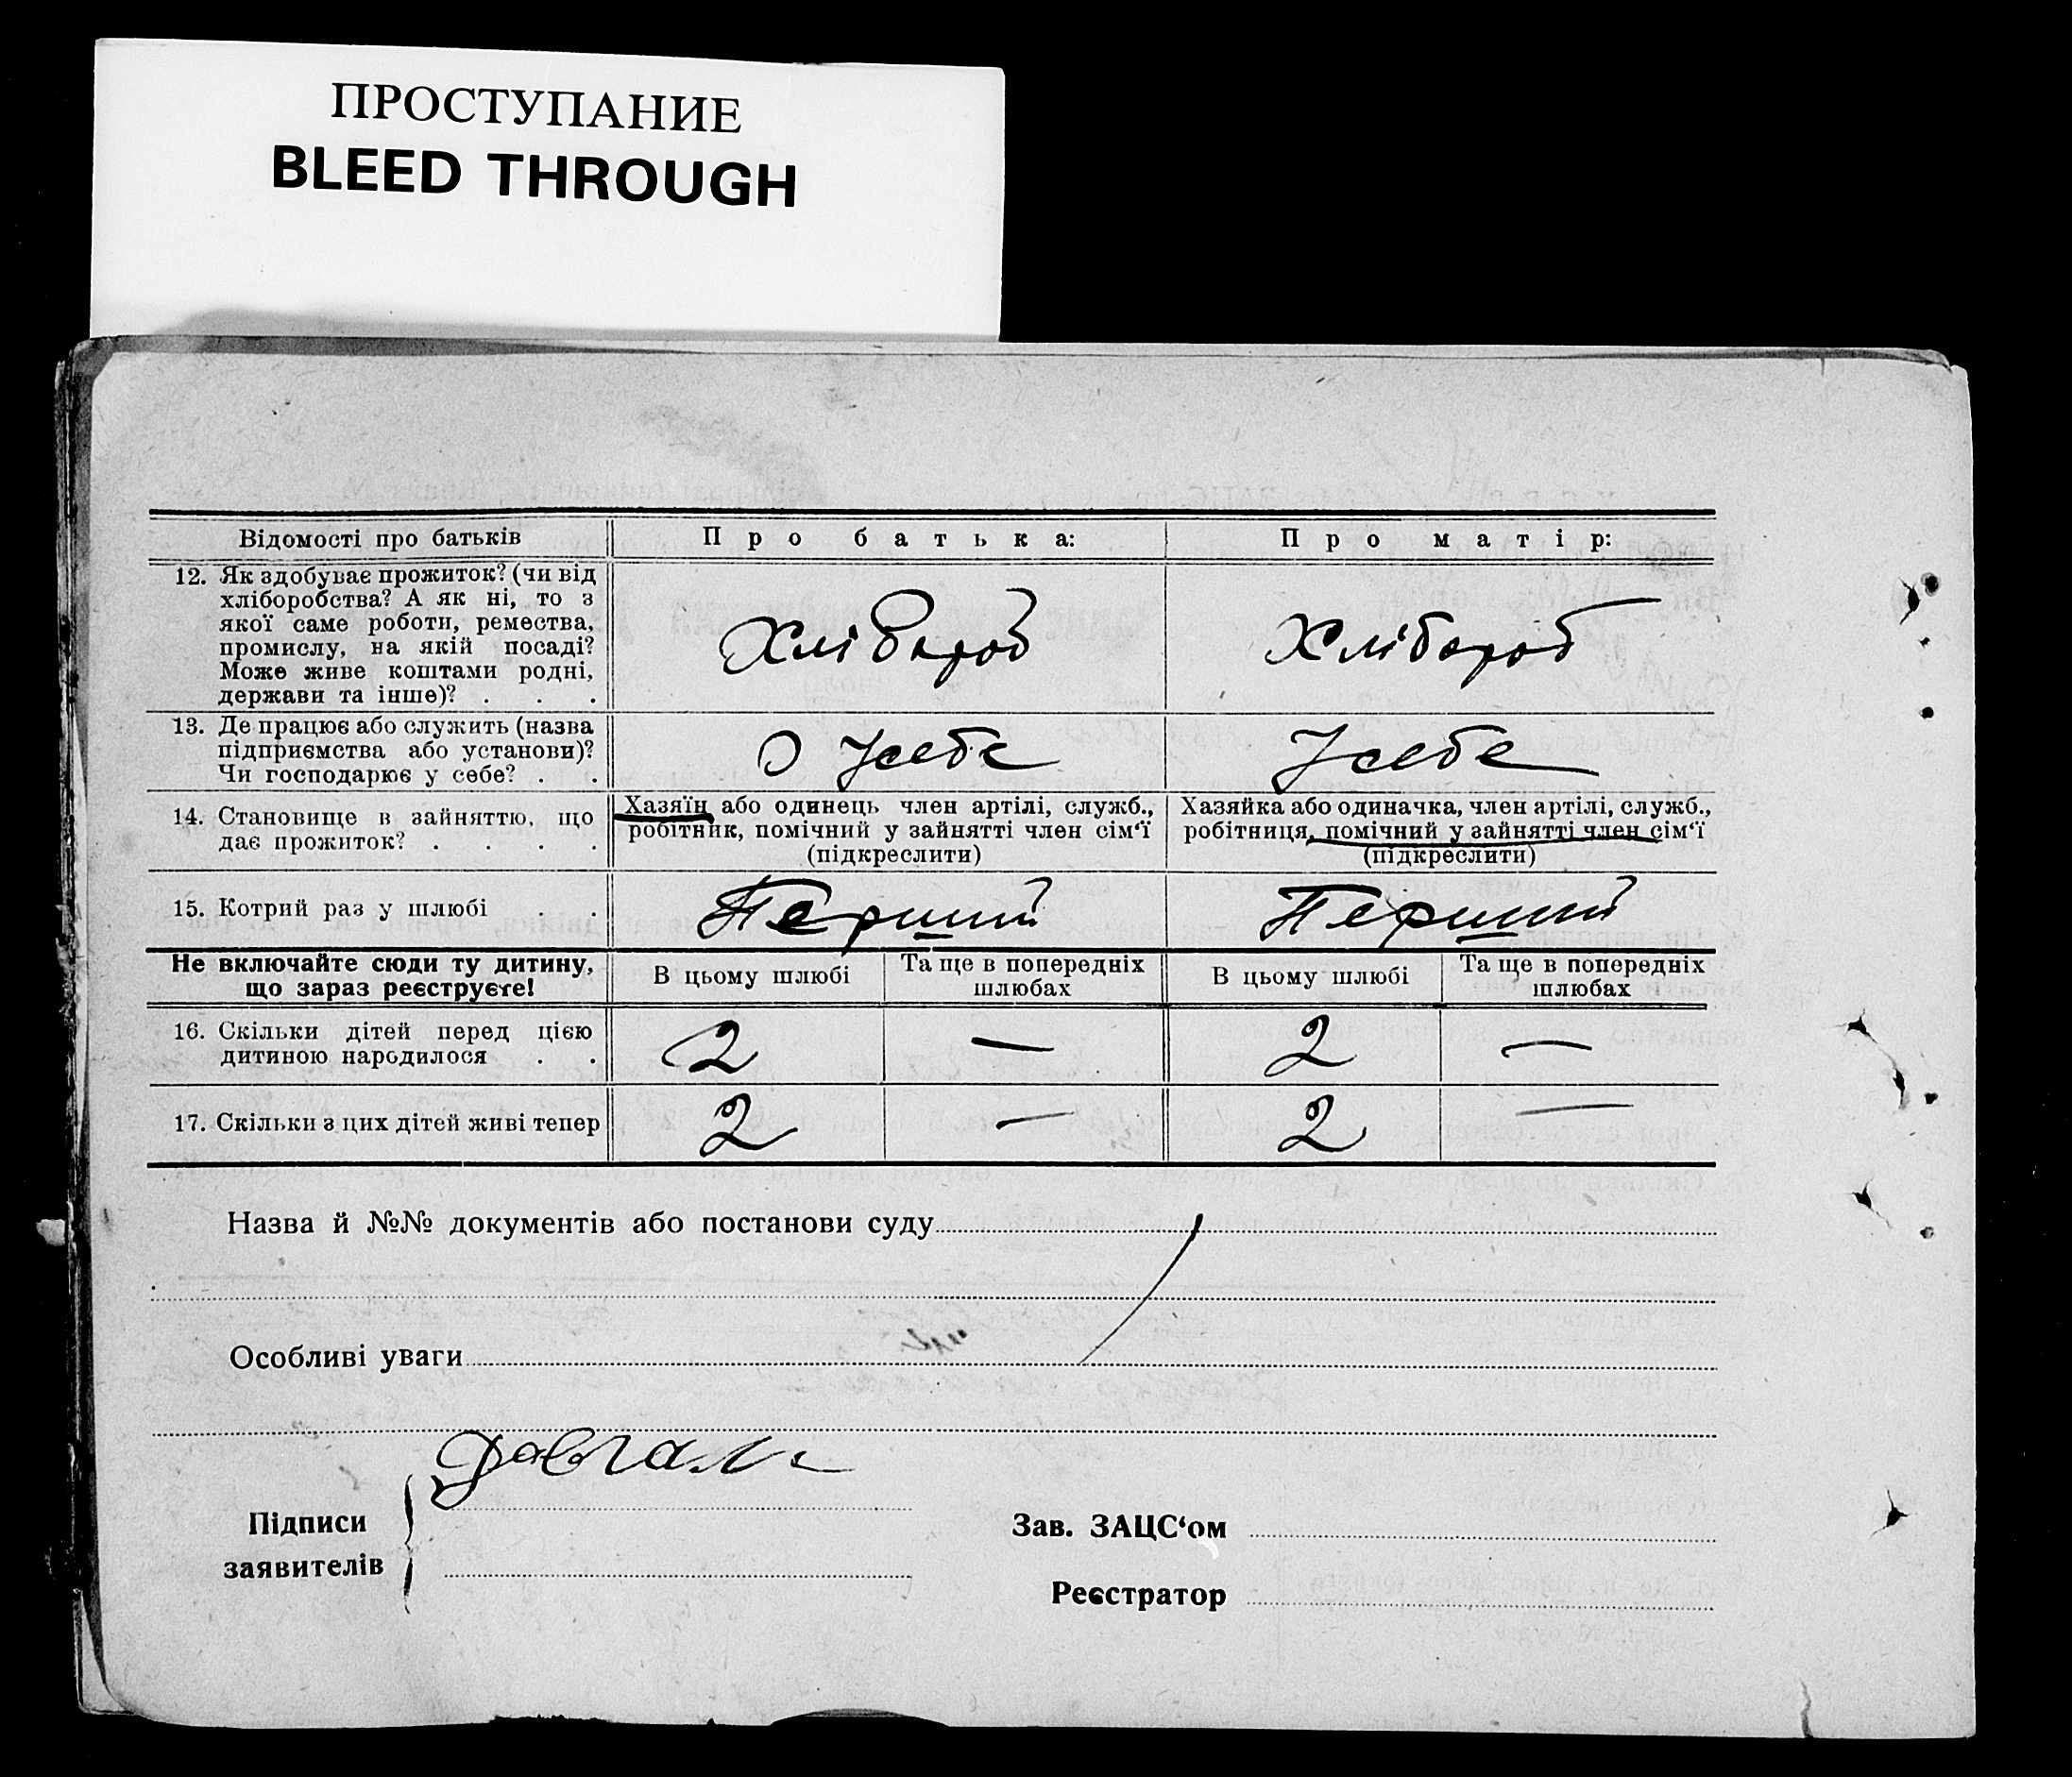 ПРОСТУПАНИЕ
BLEED THROUGH
Відомості про батьків
Про батька:
Про матір:
12. Як здобуває прожиток? (чи від
хліборобства? А як ні, то з
якої саме роботи, ремества,
промислу, на якій посаді?
Може живе коштами родні,
держави та інше)? . . .
Хлібороб
Хлібороб
13. Де працює або служить (назва
підприємства або установи)?
Чи господарює у себе? . .
Усебе
Усебе
14. Становище в зайняттю, що
дає прожиток? . . . .
Хазяїн або одинець член артілі, служб.,
робітник, помічний у зайнятті член сім‘ї
(підкреслити)
Хазяйка або одиначка, член артілі, служб.,
робітниця, помічний у зайнятті член сім‘ї
(підкреслити)
15. Котрий раз у шлюбі . .
Перший
Перший
Не включайте сюди ту дитину,
що зараз реєструєте!
В цьому шлюбі
Та ще в попередніх
шлюбах
В цьому шлюбі
Та ще в попередніх
шлюбах
16. Скільки дітей перед цією
дитиною народилося . .
2
—
2
—
17. Скільки з цих дітей живі тепер
2
—
2
—
Назва й №№ документів або постанови суду
Особливі уваги
Підписи
заявителів
Зав. ЗАЦС‘ом
Реєстратор